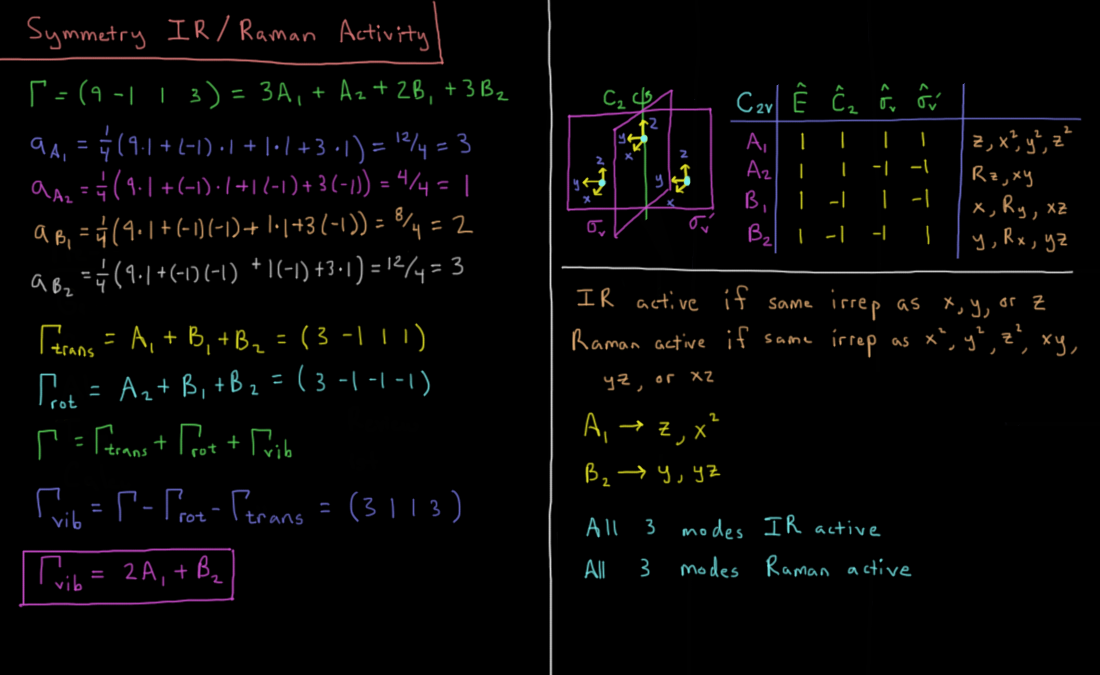 Symmetry IR/Raman Activity
Γ = (9 -1 1 3) = 3A₁ + A₂ + 2B₁ + 3B₂
a_A₁ = 1/4 (9·1 + (-1)·1 + 1·1 + 3·1) = 12/4 = 3
a_A₂ = 1/4 (9·1 + (-1)·1 + 1(-1) + 3(-1)) = 4/4 = 1
a_B₁ = 1/4 (9·1 + (-1)(-1) + 1·1 + 3(-1)) = 8/4 = 2
a_B₂ = 1/4 (9·1 + (-1)(-1) + 1(-1) + 3·1) = 12/4 = 3
Γtrans = A₁ + B₁ + B₂ = (3 -1 1 1)
Γrot = A₂ + B₁ + B₂ = (3 -1 -1 -1)
Γ = Γtrans + Γrot + Γvib
Γvib = Γ - Γrot - Γtrans = (3 1 1 3)
Γvib = 2A₁ + B₂
C₂
z
y
x
z
y
x
z
y
x
σv σv'
C₂v Ê Ĉ₂ σ̂v σ̂v'
A₁ 1 1 1 1 z, x², y², z²
A₂ 1 1 -1 -1 Rz, xy
B₁ 1 -1 1 -1 x, Ry, xz
B₂ 1 -1 -1 1 y, Rx, yz
IR active if same irrep as x, y, or z
Raman active if same irrep as x², y², z², xy,
yz, or xz
A₁ → z, x²
B₂ → y, yz
All 3 modes IR active
All 3 modes Raman active